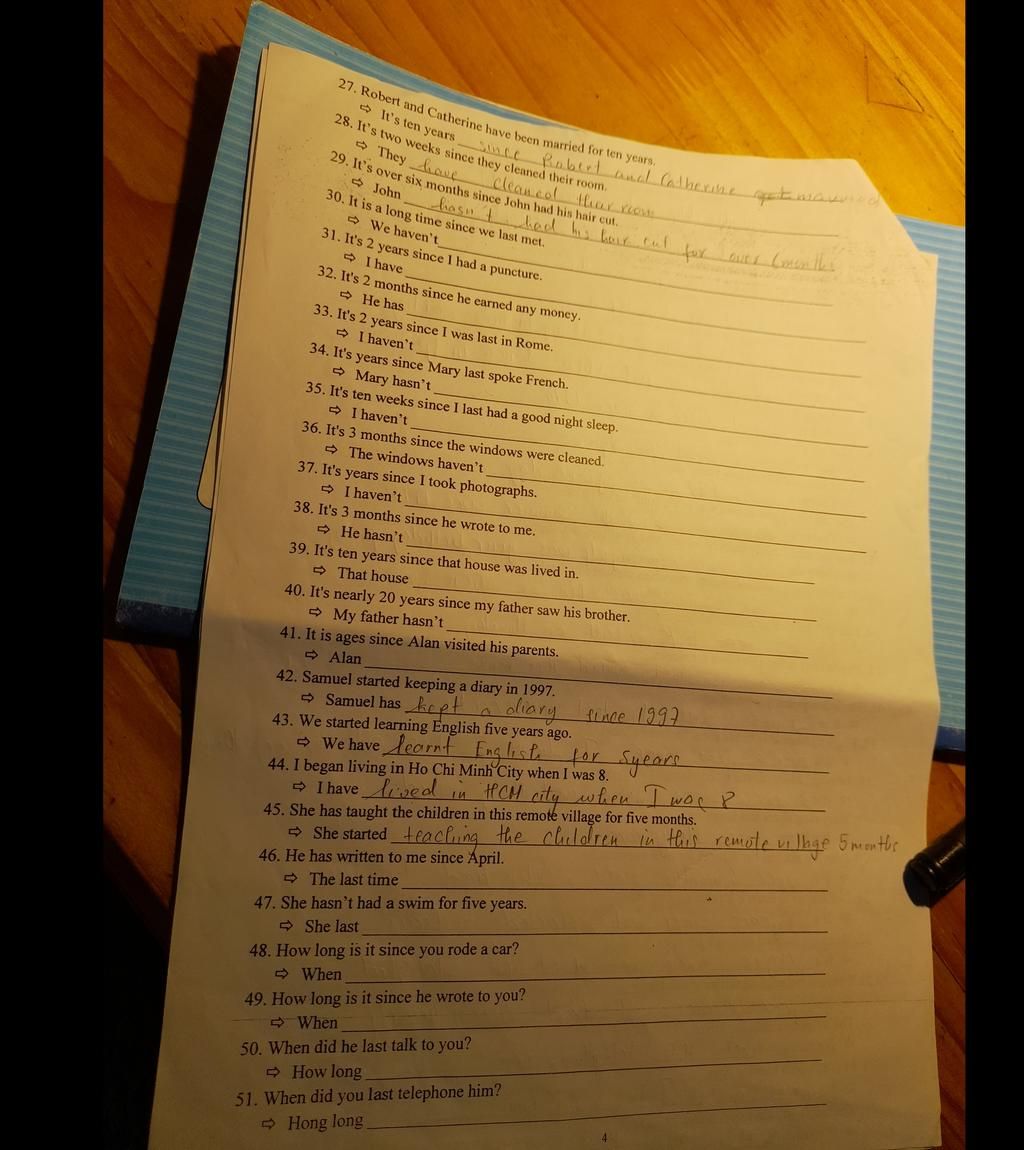 27. Robert and Catherine have been married for ten years.
⇨ It's ten years since Robert and Catherine married
28. It's two weeks since they cleaned their room.
⇨ They have cleaned their room
29. It's over six months since John had his hair cut.
⇨ John hasn't had his hair cut for over 6 months
30. It is a long time since we last met.
⇨ We haven't
31. It's 2 years since I had a puncture.
⇨ I have
32. It's 2 months since he earned any money.
⇨ He has
33. It's 2 years since I was last in Rome.
⇨ I haven't
34. It's years since Mary last spoke French.
⇨ Mary hasn't
35. It's ten weeks since I last had a good night sleep.
⇨ I haven't
36. It's 3 months since the windows were cleaned.
⇨ The windows haven't
37. It's years since I took photographs.
⇨ I haven't
38. It's 3 months since he wrote to me.
⇨ He hasn't
39. It's ten years since that house was lived in.
⇨ That house
40. It's nearly 20 years since my father saw his brother.
⇨ My father hasn't
41. It is ages since Alan visited his parents.
⇨ Alan
42. Samuel started keeping a diary in 1997.
⇨ Samuel has kept a diary since 1997
43. We started learning English five years ago.
⇨ We have learnt English for 5 years
44. I began living in Ho Chi Minh City when I was 8.
⇨ I have lived in HCM city when I was 8
45. She has taught the children in this remote village for five months.
⇨ She started teaching the children in this remote village 5 months
46. He has written to me since April.
⇨ The last time
47. She hasn't had a swim for five years.
⇨ She last
48. How long is it since you rode a car?
⇨ When
49. How long is it since he wrote to you?
⇨ When
50. When did he last talk to you?
⇨ How long
51. When did you last telephone him?
⇨ Hong long
4